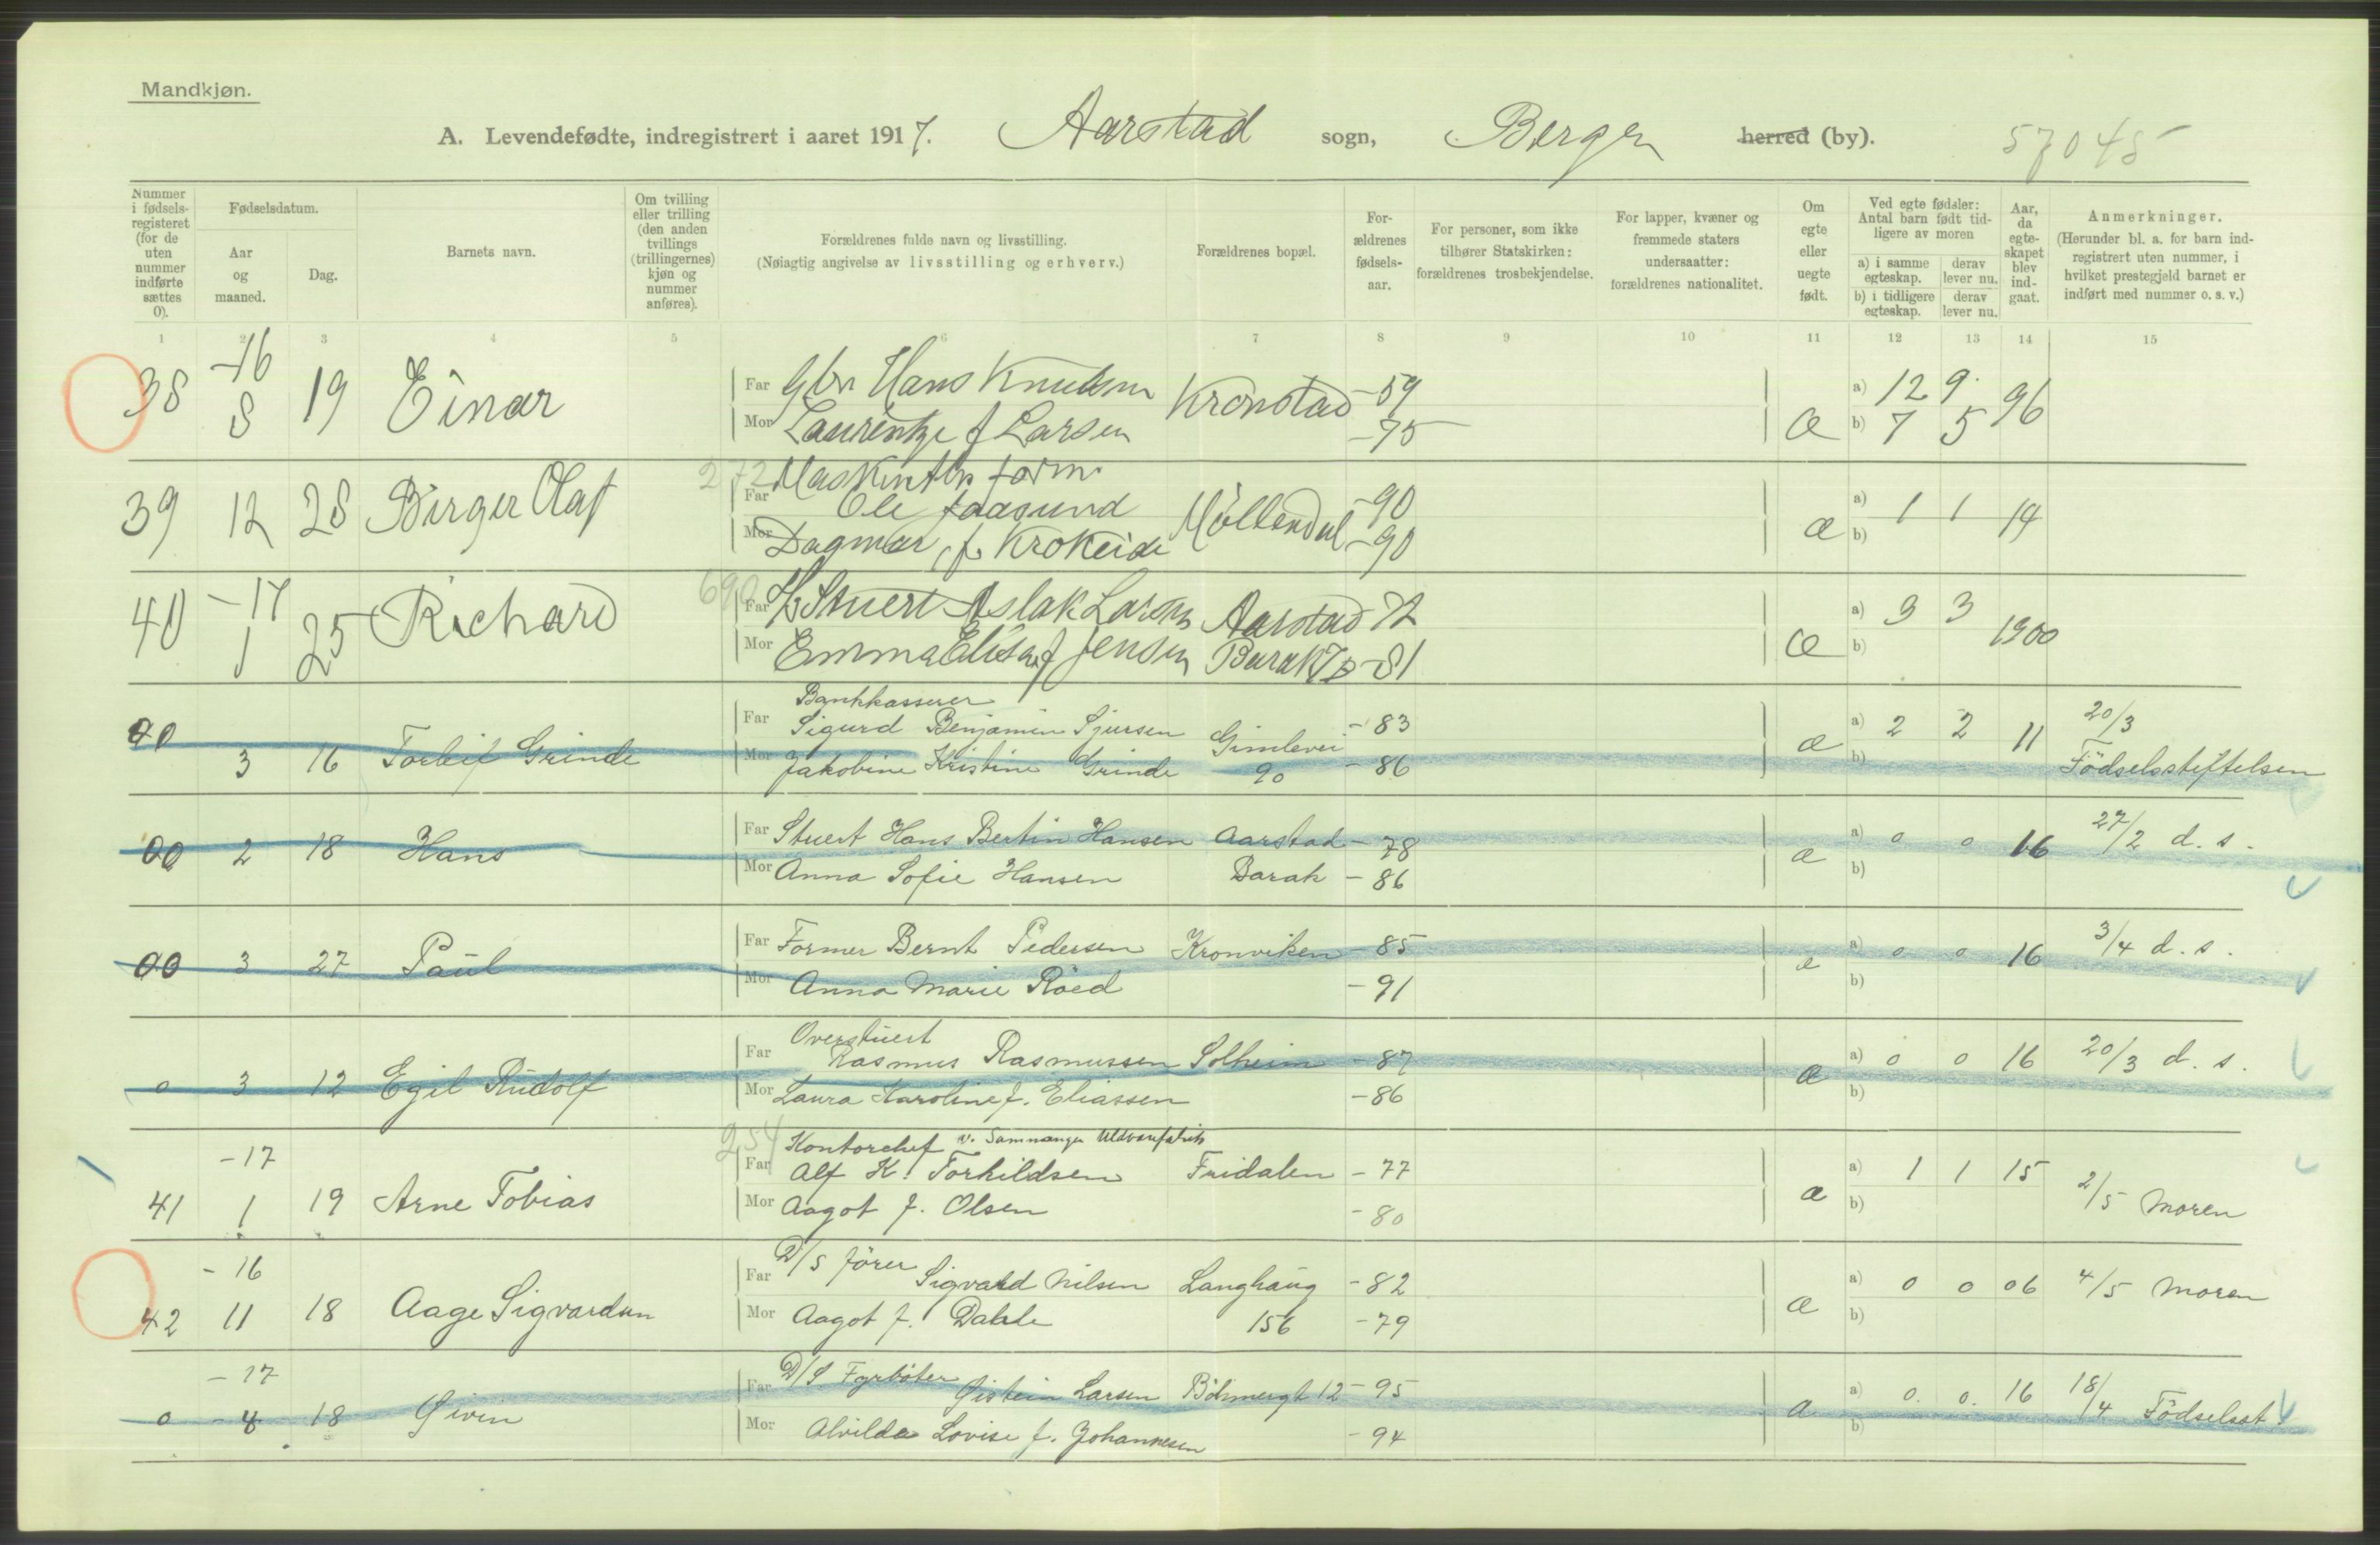 Mandkjøn.
A. Levendefødte, indregistrert i aaret 1917. Aarstad sogn, Bergen herred (by). 57045
Nummer i fødsels-registeret (for de uten nummer indførte sættes 0).
Fødselsdatum.
Aar og maaned.
Dag.
Barnets navn.
Om tvilling eller trilling (den anden tvillings (trillingernes) kjøn og nummer anføres).
Forældrenes fulde navn og livsstilling.
(Nøiagtig angivelse av livsstilling og erhverv.)
Forældrenes bopæl.
For-ældrenes fødsels-aar.
For personer, som ikke tilhører Statskirken: forældrenes trosbekjendelse.
For lapper, kvæner og fremmede staters undersaatter: forældrenes nationalitet.
Om egte eller uegte født.
Ved egte fødsler: Antal barn født tid-ligere av moren
a) i samme egteskap. derav lever nu.
b) i tidligere egteskap. derav lever nu.
Aar, da egte-skapet blev ind-gaat.
Anmerkninger.
(Herunder bl. a. for barn ind-registrert uten nummer, i hvilket prestegjeld barnet er indført med nummer o. s. v.)
1 2 3 4 5 6 7 8 9 10 11 12 13 14 15
38 -16 8 19 Einar Far Gbr Hans Knudsen Kronstad -59 a) 12 9 96
Mor Laurentze f Larsen -75 Æ b) 7 5
272 Maskinarb. form.
39 12 28 Birger Olaf Far Ole Faasund Möllendal -90 a) 1 1 14
Mor Dagmar f. Krokeide -90 æ b)
690
40 -17 1 25 Richard Far Stuert Aslak Larsen Aarstad 72 a) 3 3 1900
Mor Emma Elisa f Jensen Barak 7 -81 Æ b)
Bankkasserer
00 3 16 Torleif Grinde Far Sigurd Benjamin Sjursen Gimlevei -83 æ a) 2 2 11 20/3
Mor Jakobine Kristine Grinde 90 -86 b) Födselsstiftelsen
00 2 18 Hans Far Stuert Hans Bertin Hansen Aarstad -78 æ a) 0 0 16 27/2 d. s.
Mor Anna Sofie Hansen Barak -86 b)
00 3 27 Paul Far Former Bernt Pedersen Kronviken -85 æ a) 0 0 16 3/4 d. s.
Mor Anna Marie Röed -91 b)
Overstuert
0 3 12 Egil Rudolf Far Rasmus Rasmussen Solheim -87 æ a) 0 0 16 20/3 d. s.
Mor Laura Karoline f. Eliassen -86 b)
254 Kontorchef v. Samnanger Uldvarefabrik
41 -17 1 19 Arne Tobias Far Alf K. Torkildsen Fridalen -77 æ a) 1 1 15 2/5 Moren
Mor Aagot f. Olsen -80 b)
D/S förer
42 -16 11 18 Aage Sigvardsen Far Sigvald Nilsen Langhaug -82 æ a) 0 0 06 4/5 Moren
Mor Aagot f. Dahle 156 -79 b)
D/S Fyrböter
0 -17 4 18 Øivin Far Øistein Larsen Böhmergt 12 -95 æ a) 0. 0. 16 18/4 Födselsst.
Mor Alvilda Lovise f. Johannesen -94 b)